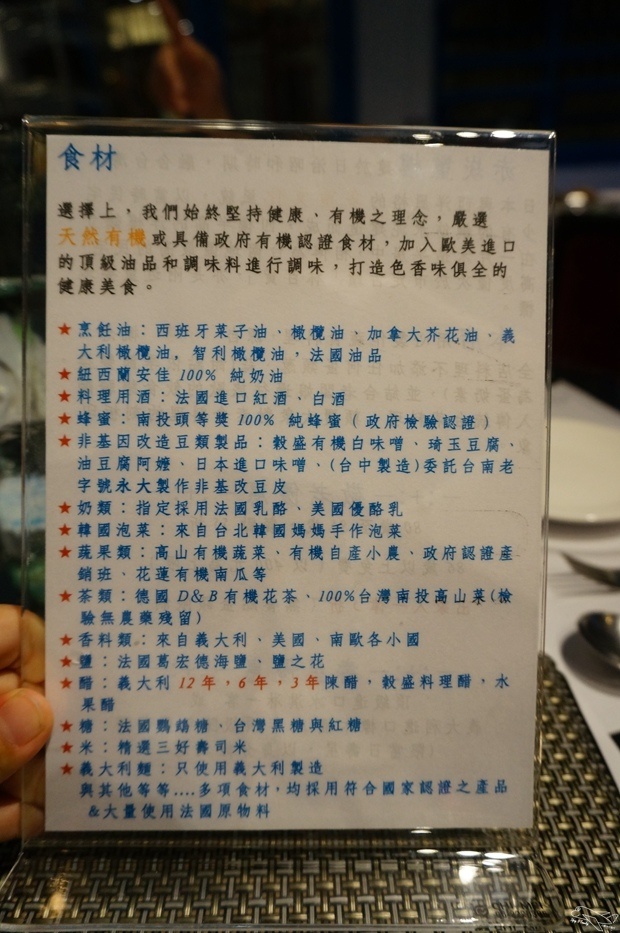 食材
選擇上，我們始終堅持健康、有機之理念，嚴選
天然有機或具備政府有機認證食材，加入歐美進口
的頂級油品和調味料進行調味，打造色香味俱全的
健康美食。
★烹飪油：西班牙菓子油、橄欖油、加拿大芥花油、義
大利橄欖油，智利橄欖油，法國油品
★紐西蘭安佳 100% 純奶油
★料理用酒：法國進口紅酒、白酒
★蜂蜜：南投頭等獎 100% 純蜂蜜（政府檢驗認證）
★非基因改造豆類製品：穀盛有機白味噌、琦玉豆腐、
油豆腐阿嬤、日本進口味噌、(台中製造)委託台南老
字號永大製作非基改豆皮
★奶類：指定採用法國乳酪、美國優酪乳
★韓國泡菜：來自台北韓國媽媽手作泡菜
★蔬果類：高山有機蔬菜、有機自產小農、政府認證產
銷班、花蓮有機南瓜等
★茶類：德國 D&B有機花茶、100%台灣南投高山菜(檢
驗無農藥殘留)
★香料類：來自義大利、美國、南歐各小國
★鹽：法國葛宏德海鹽、鹽之花
★醋：義大利 12年，6年，3年陳醋，穀盛料理醋，水
果醋
★糖：法國鸚鵡糖、台灣黑糖與紅糖
★米：精選三好壽司米
★義大利麵：只使用義大利製造
與其他等等....多項食材，均採用符合國家認證之產品
&大量使用法國原物料